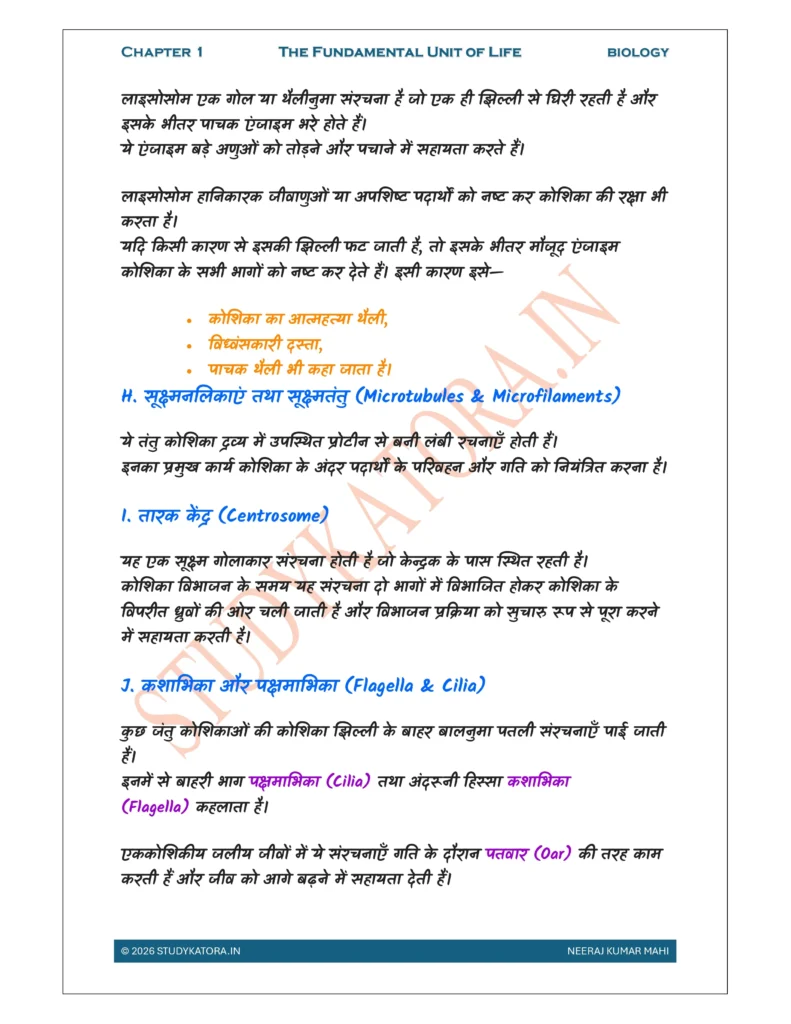 CHAPTER 1 THE FUNDAMENTAL UNIT OF LIFE BIOLOGY
लाइसोसोम एक गोल या थैलीनुमा संरचना है जो एक ही झिल्ली से घिरी रहती है और
इसके भीतर पाचक एंजाइम भरे होते हैं।
ये एंजाइम बड़े अणुओं को तोड़ने और पचाने में सहायता करते हैं।
लाइसोसोम हानिकारक जीवाणुओं या अपशिष्ट पदार्थों को नष्ट कर कोशिका की रक्षा भी
करता है।
यदि किसी कारण से इसकी झिल्ली फट जाती है, तो इसके भीतर मौजूद एंजाइम
कोशिका के सभी भागों को नष्ट कर देते हैं। इसी कारण इसे—
• कोशिका का आत्महत्या थैली,
• विध्वंसकारी दस्ता,
• पाचक थैली भी कहा जाता है।
H. सूक्ष्मनलिकाएं तथा सूक्ष्मतंतु (Microtubules & Microfilaments)
ये तंतु कोशिका द्रव्य में उपस्थित प्रोटीन से बनी लंबी रचनाएँ होती हैं।
इनका प्रमुख कार्य कोशिका के अंदर पदार्थों के परिवहन और गति को नियंत्रित करना है।
I. तारक केंद्र (Centrosome)
यह एक सूक्ष्म गोलाकार संरचना होती है जो केन्द्रक के पास स्थित रहती है।
कोशिका विभाजन के समय यह संरचना दो भागों में विभाजित होकर कोशिका के
विपरीत ध्रुवों की ओर चली जाती है और विभाजन प्रक्रिया को सुचारु रूप से पूरा करने
में सहायता करती है।
J. कशाभिका और पक्षमाभिका (Flagella & Cilia)
कुछ जंतु कोशिकाओं की कोशिका झिल्ली के बाहर बालनुमा पतली संरचनाएँ पाई जाती
हैं।
इनमें से बाहरी भाग पक्षमाभिका (Cilia) तथा अंदरूनी हिस्सा कशाभिका
(Flagella) कहलाता है।
एककोशिकीय जलीय जीवों में ये संरचनाएँ गति के दौरान पतवार (Oar) की तरह काम
करती हैं और जीव को आगे बढ़ने में सहायता देती हैं।
STUDYKATORA.IN
© 2026 STUDYKATORA.IN NEERAJ KUMAR MAHI